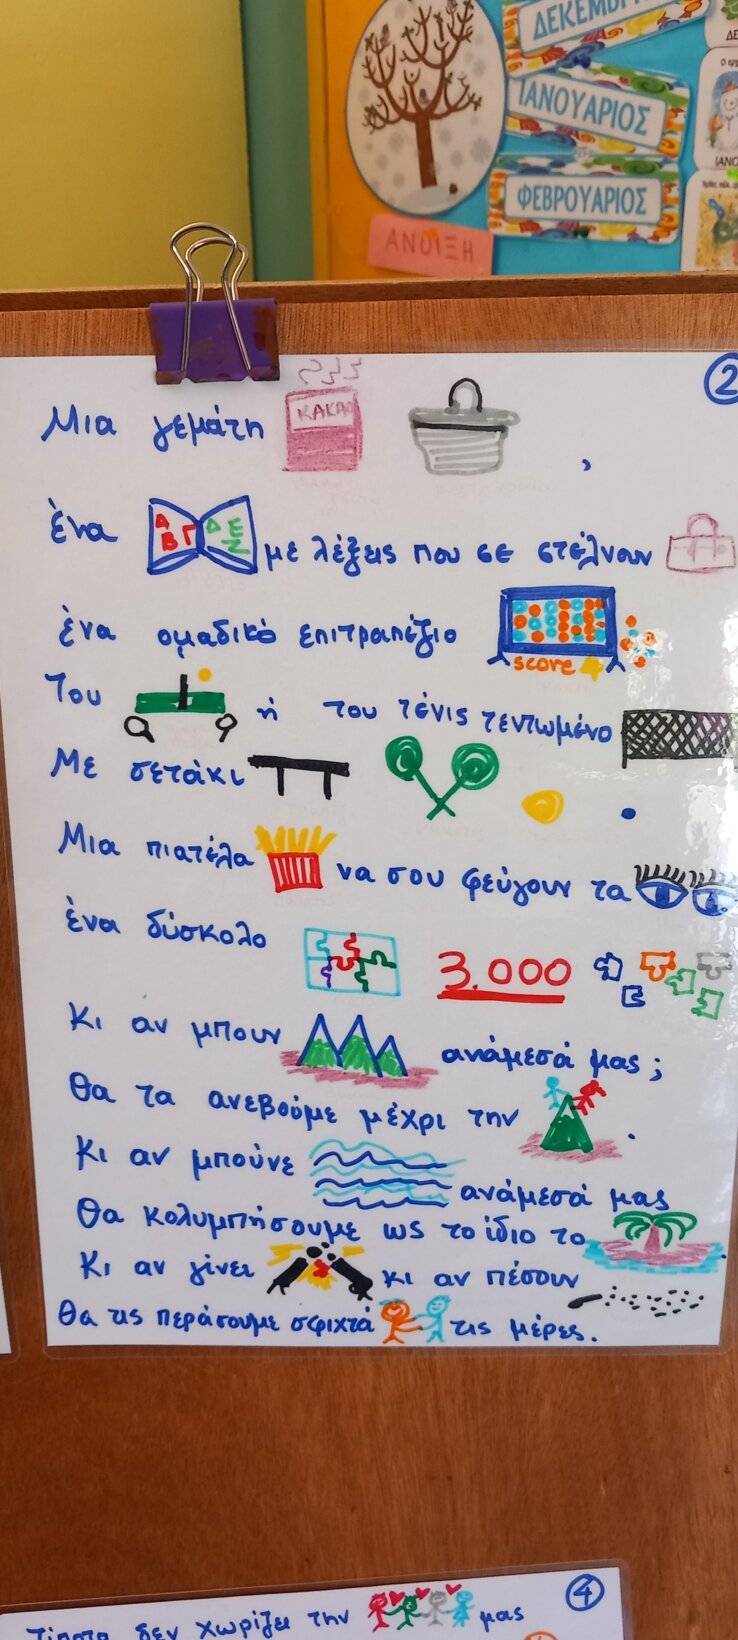 ΔΕΚΕΜΒΡΙ
ΙΑΝΟΥΑΡΙΟΣ
ΦΕΒΡΟΥΑΡΙΟΣ
ΙΑΝΟ
ΑΝΟΙΞΗ
2
Μια γεμάτη ΚΑΚΑΟ ,
ένα Α Β Γ Δ Ε Ζ με λέξεις που σε στέλνουν
ένα ομαδικό επιτραπέζιο
score 4
Του ή του τένις τεντωμένο
Με σετάκι .
Μια πιατέλα να σου φεύγουν τα
ένα δύσκολο 3.000
Κι αν μπουν ανάμεσά μας ;
Θα τα ανεβούμε μέχρι την .
Κι αν μπούνε ανάμεσά μας
Θα κολυμπήσουμε ως το ίδιο το
Κι αν γίνει κι αν πέσουν
Θα τις περάσουμε σφιχτά τις μέρες.
4
Τίποτα δεν χωρίζει την μας